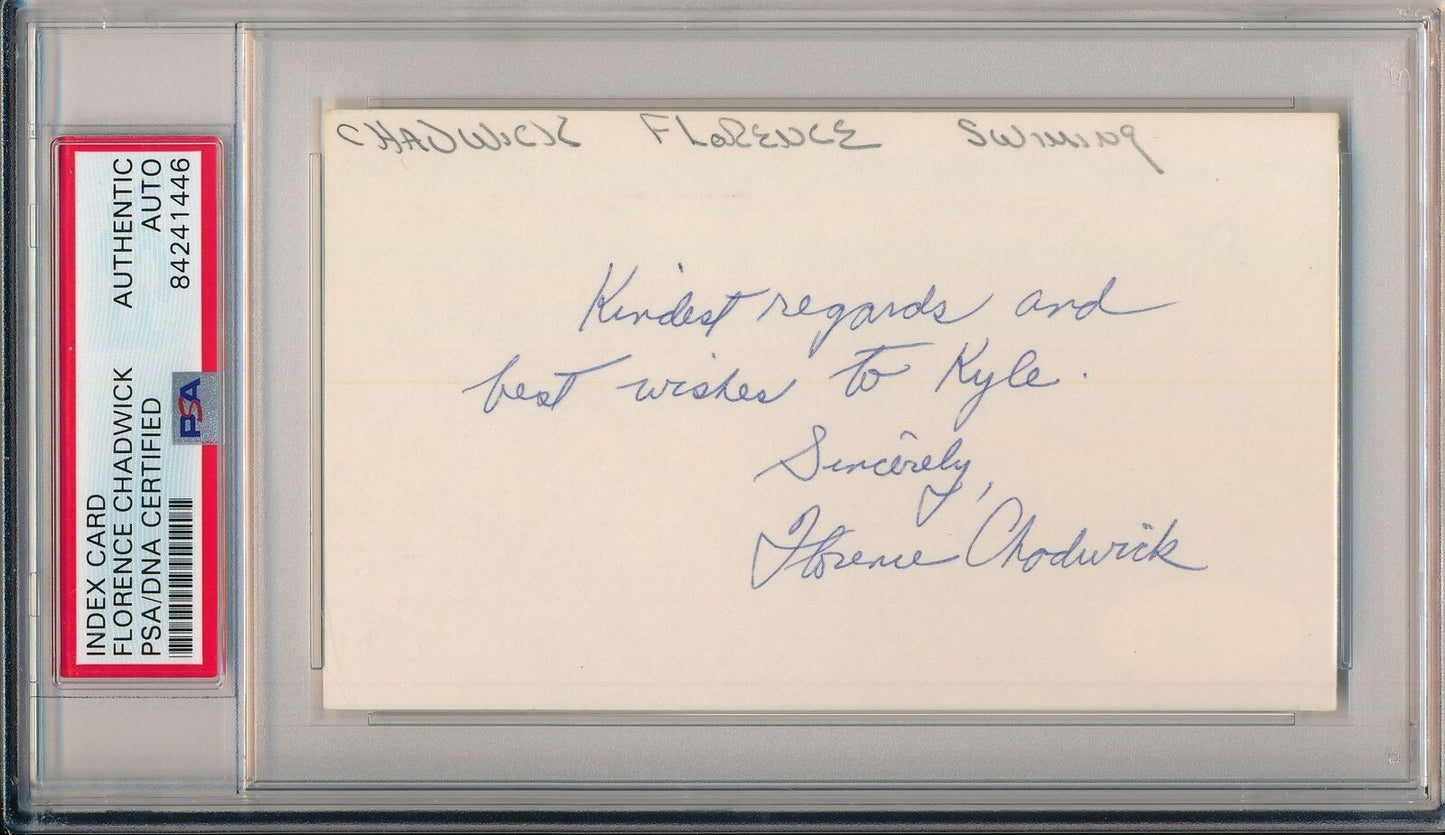 INDEX CARD
FLORENCE CHADWICK AUTHENTIC
PSA/DNA CERTIFIED AUTO
84241446
PSA
CHADWICK FLORENCE SWIMING
Kindest regards and
best wishes to Kyle.
Sincerely,
Florence Chadwick